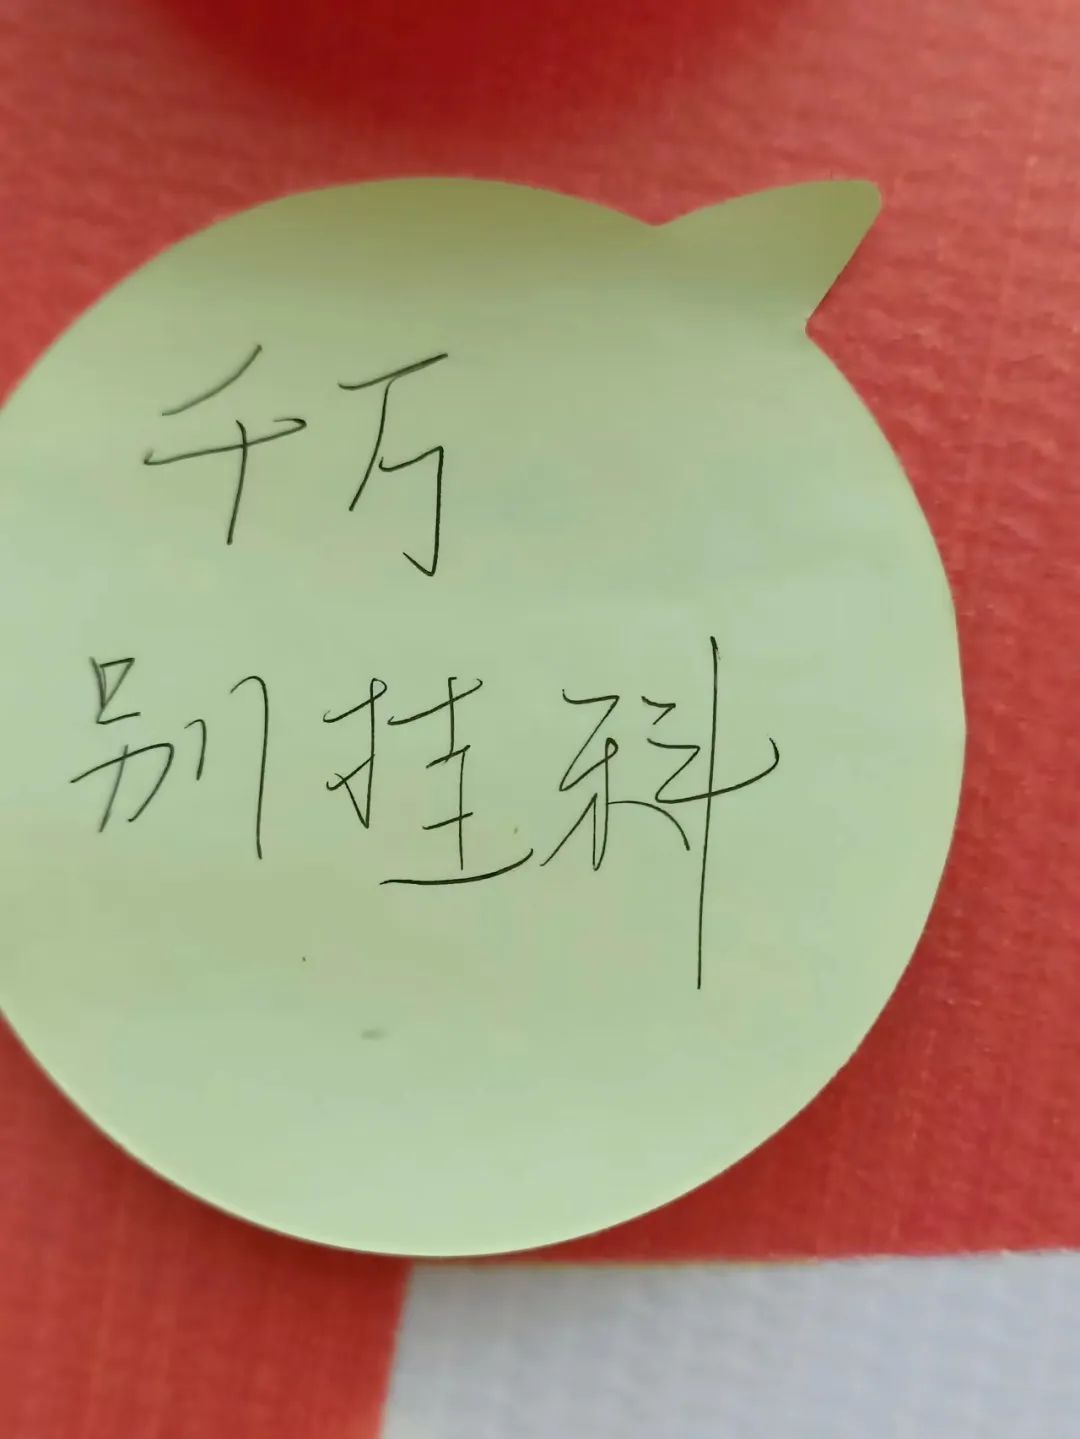 千万
别挂科